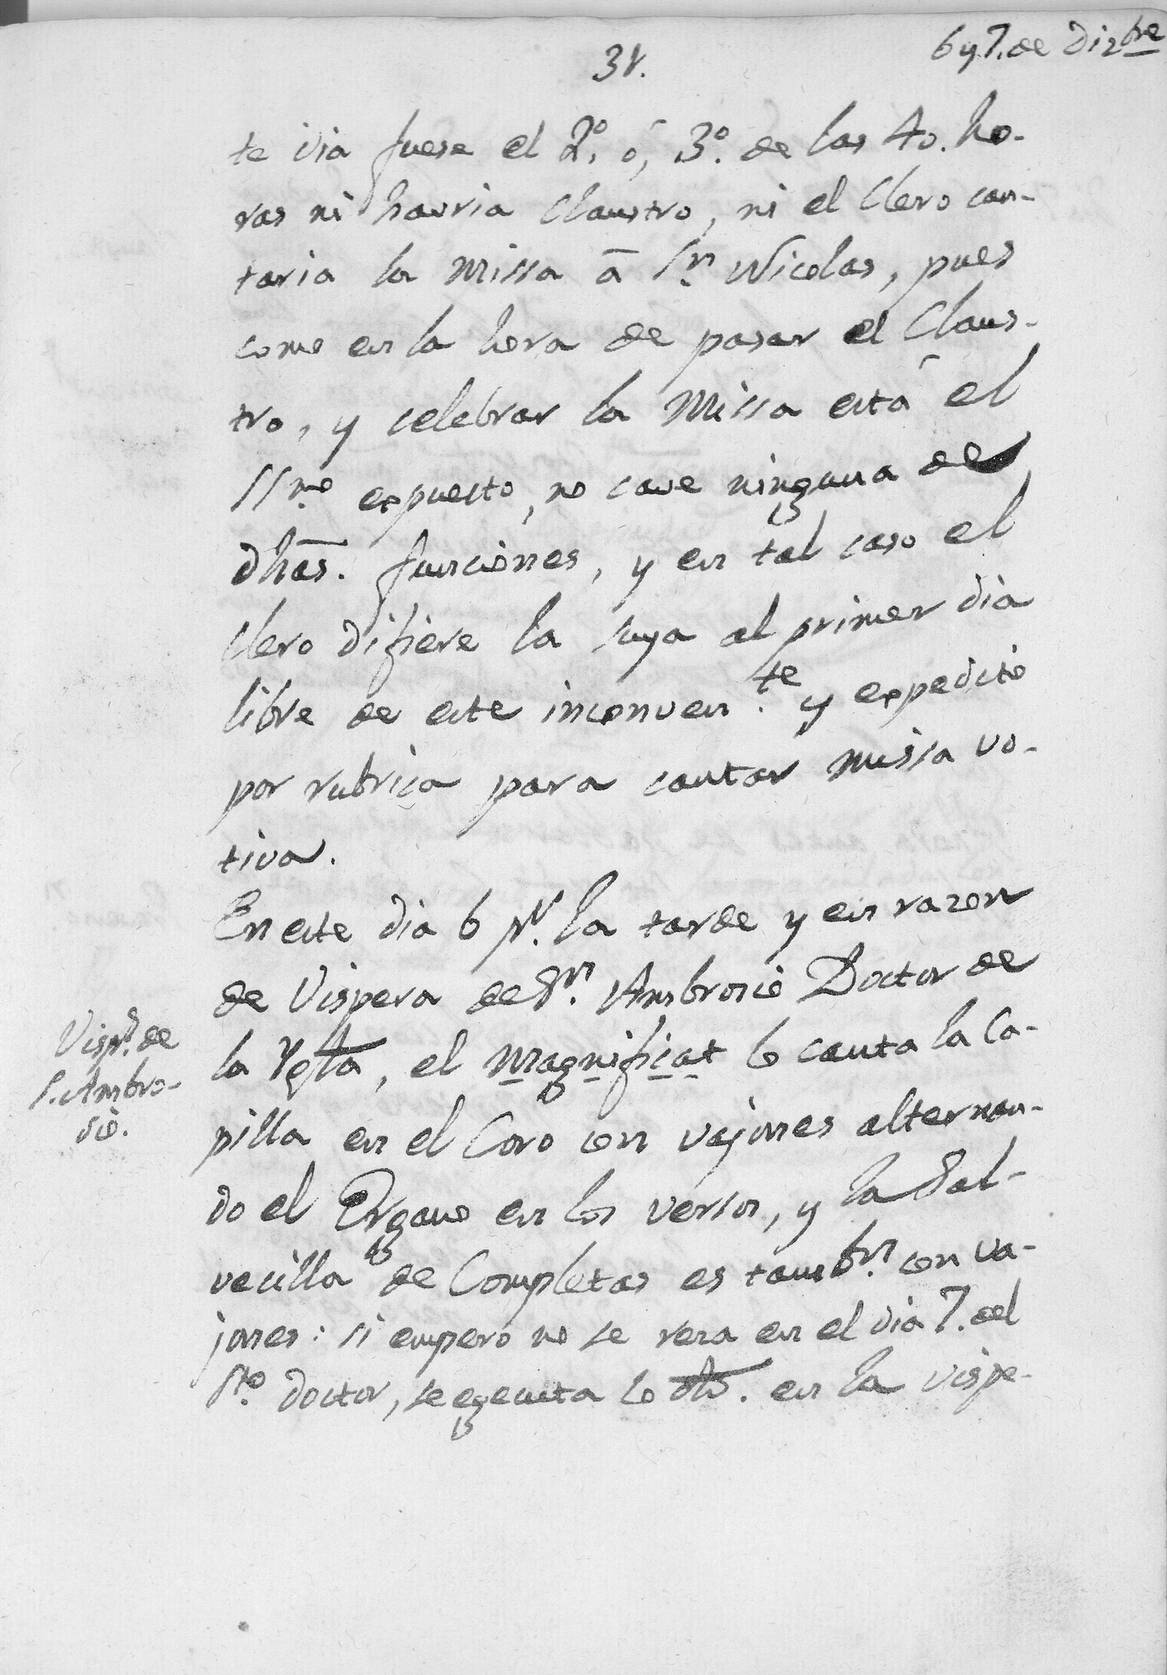 31.
6 y 7. de Dizbre
te dia fuese el 2º. ó, 3º. de las 40. ho-
ras ni havria Claustro, ni el Clero can-
taria la Missa â Sn. Nicolas, pues
como en la hora de pasar el Claus-
tro, y celebrar la Missa está el
SSmo. expuesto, no cave ninguna de
dhas. funciones, y en tal caso el
Clero difiere la suya al primer dia
libre de este inconven.te y expedito
por rubrica para cantar missa vo-
tiva.
En este dia 6 pr. la tarde y en razon
de Vispera de Sn. Ambrosio Doctor de
la Ygla, el Magnificat lo canta la Ca-
pilla en el Coro con vajones alternan-
do el Organo en los versos, y la Sal-
vecilla de Completas es tambn. con va-
jones: si empero no se reza en el dia 7. del
Sto. Doctor, se egecuta lo dho. en la vispe-
Vispr. de
S. Ambro-
sio.